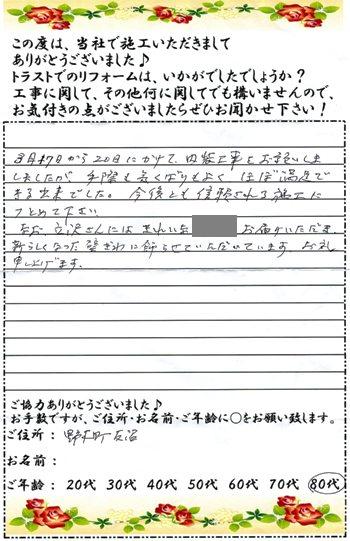 この度は、当社で施工いただきまして
ありがとうございました♪
トラストでのリフォームは、いかがでしたでしょうか？
工事に関して、その他何に関してでも構いませんので、
お気付きの点がございましたらぜひお聞かせ下さい！
8月17日から20日にかけて、内装工事をお願いしま
しましたが 手際も良く ばりもよく ほぼ満足で
きる出来でした。 今後とも信頼される施工に
つとめて下さい
なお、立沢さんには きれいな お届けいただき、
新らしくなった 壁ぎわに飾らせていただいています。お礼
申し上げます。
ご協力ありがとうございました♪
お手数ですが、ご住所・お名前・ご年齢に○をお願い致します。
ご住所： 野木町友沼
お名前：
ご年齢： 20代 30代 40代 50代 60代 70代 80代